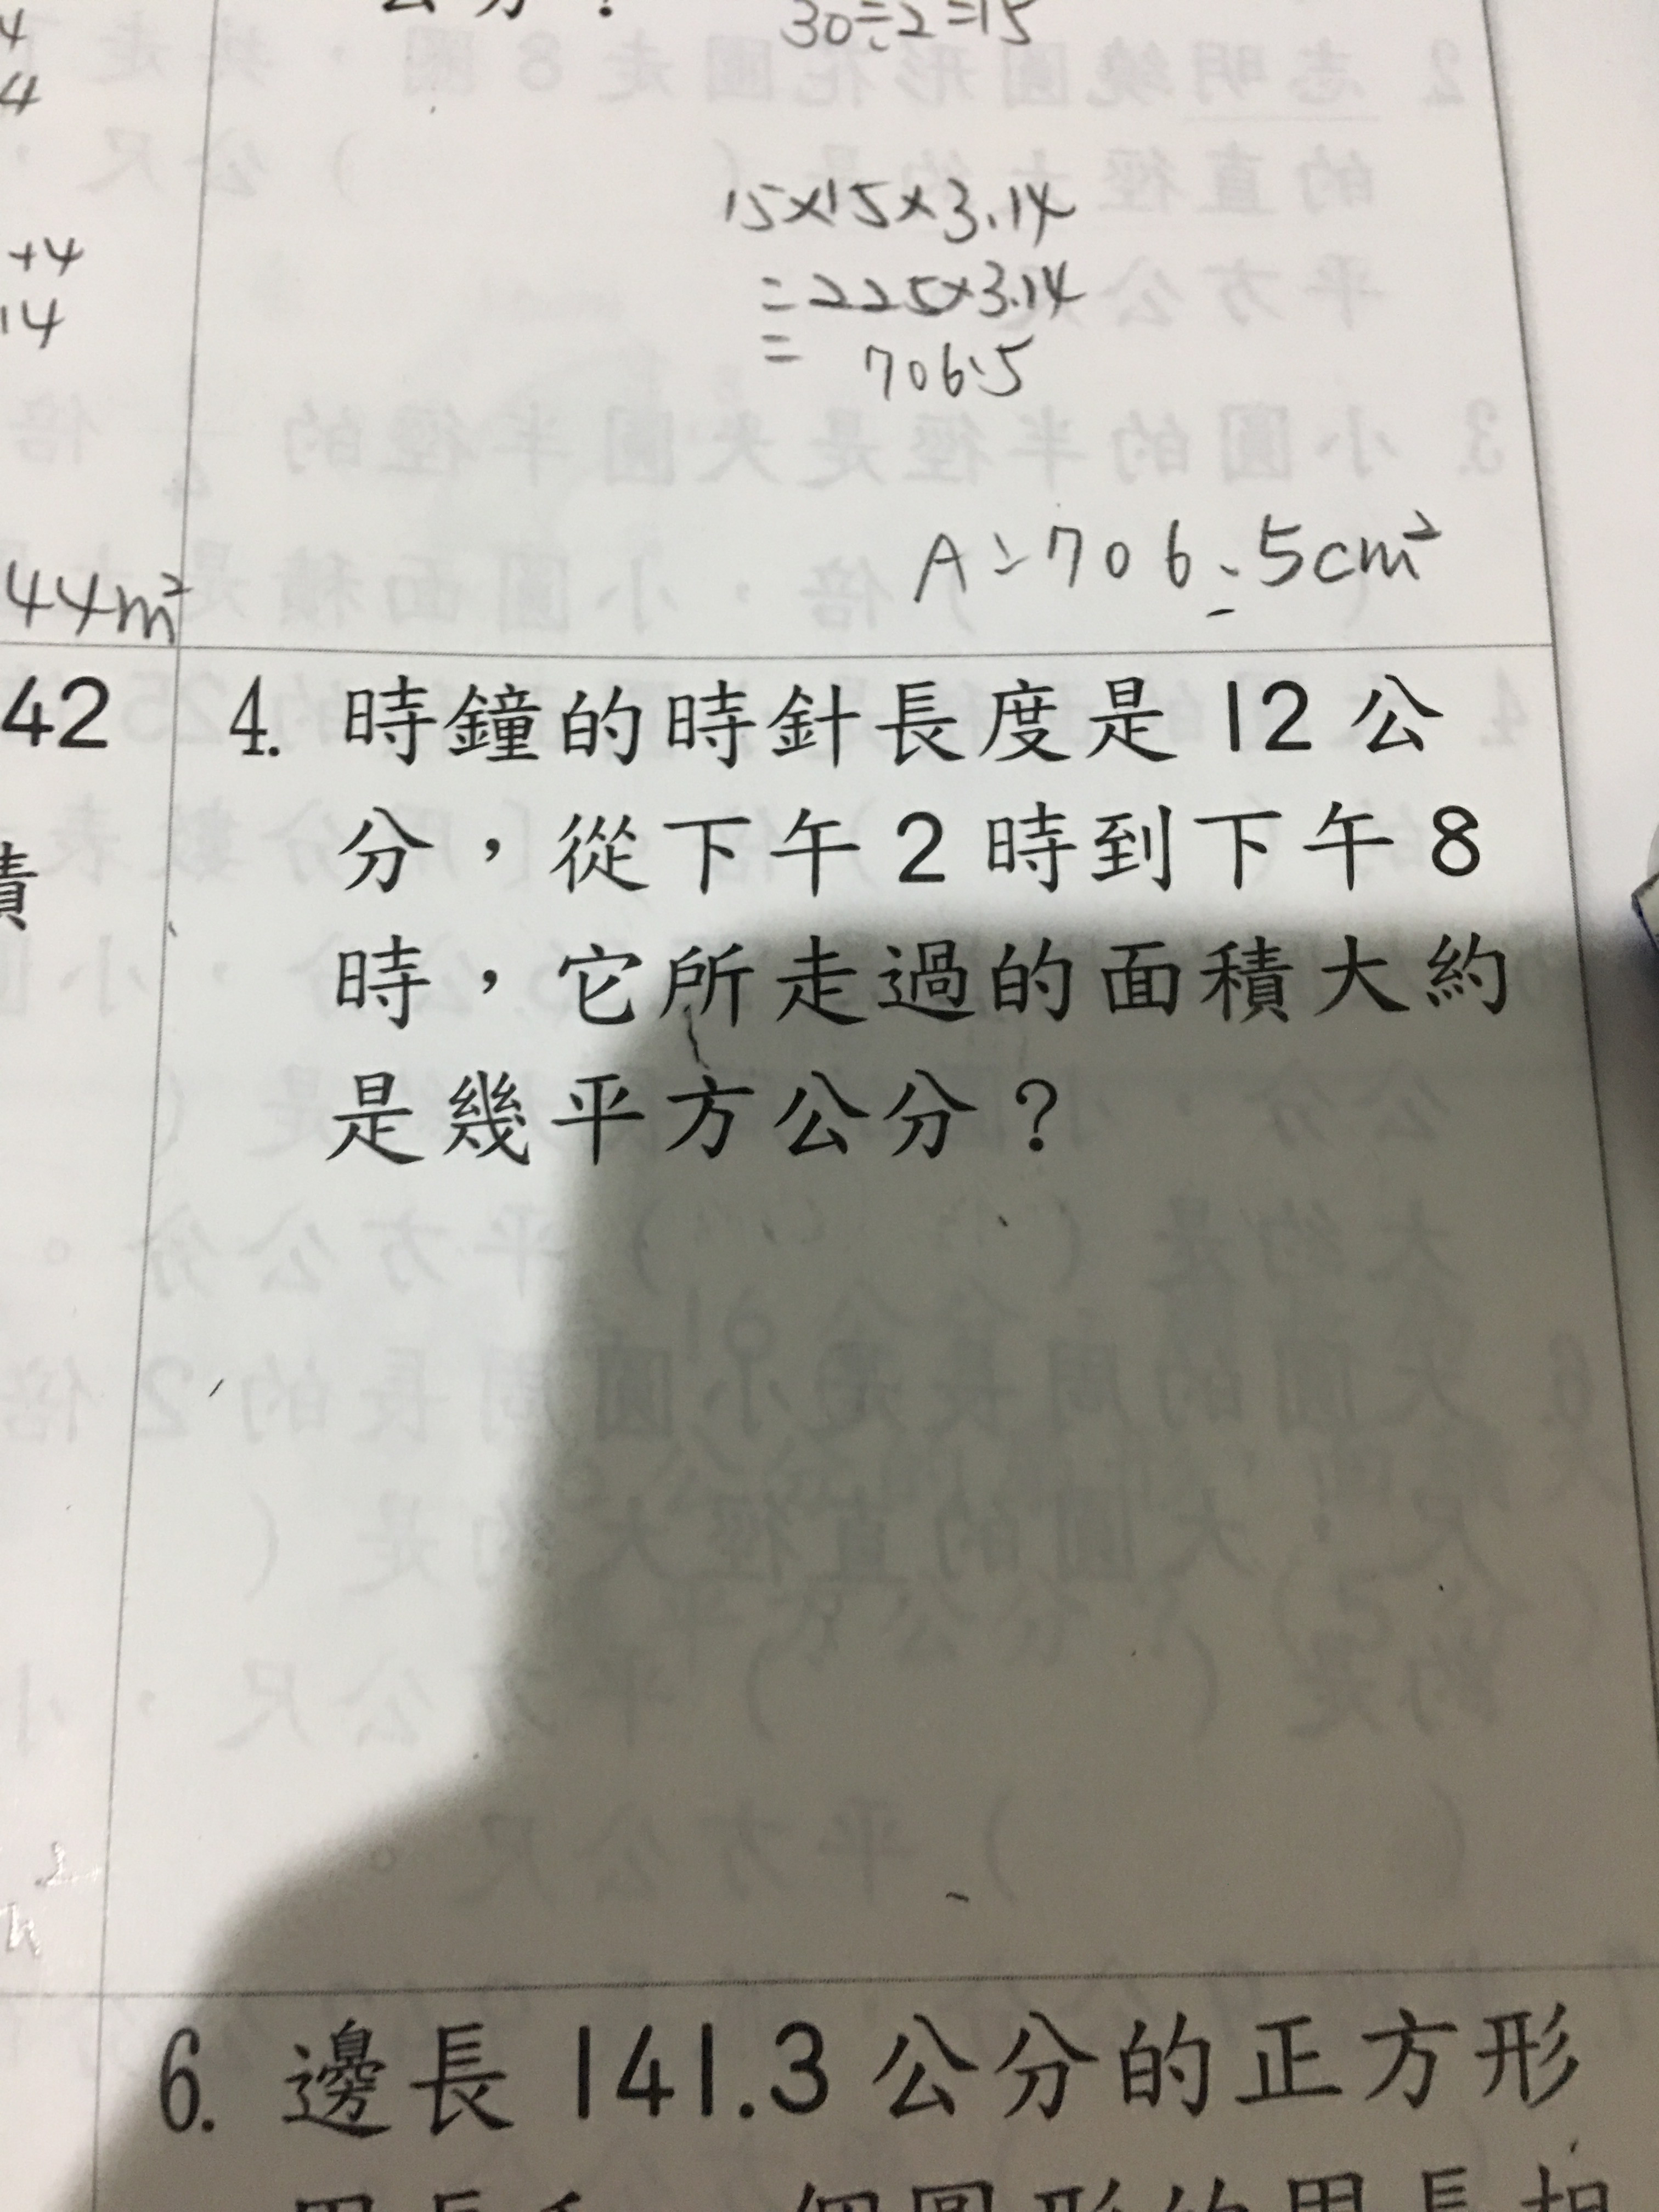 30÷2=15
15×15×3.14
=225×3.14
= 706.5
A:706.5cm²
4
4
+4
14
44m²
42
積
4. 時鐘的時針長度是 12 公
分，從下午 2 時到下午 8
時，它所走過的面積大約
是幾平方公分？
6. 邊長 141.3 公分的正方形